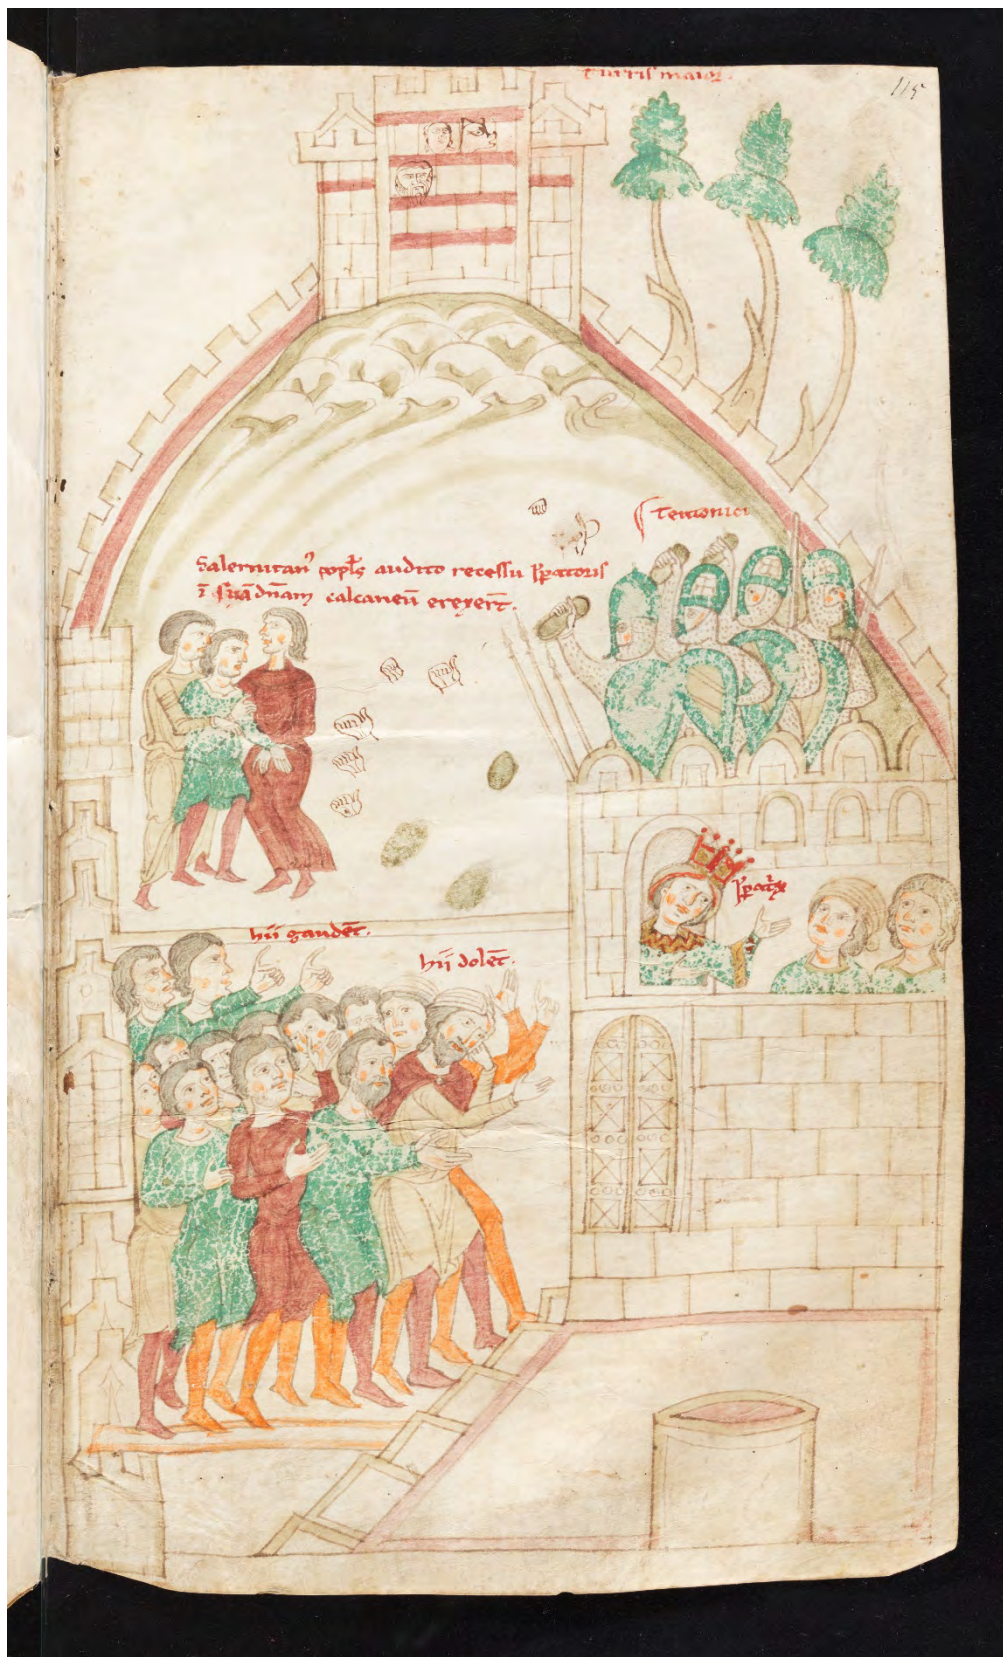 turris maior.
115
teutonici
Salernitan᾽ popl̅s audito recessu Ip̅atoris
ī suā dn̄am calcaneū erexer̅t.
Ip̅at͛x
hii gaudēt.
hii dolēt.